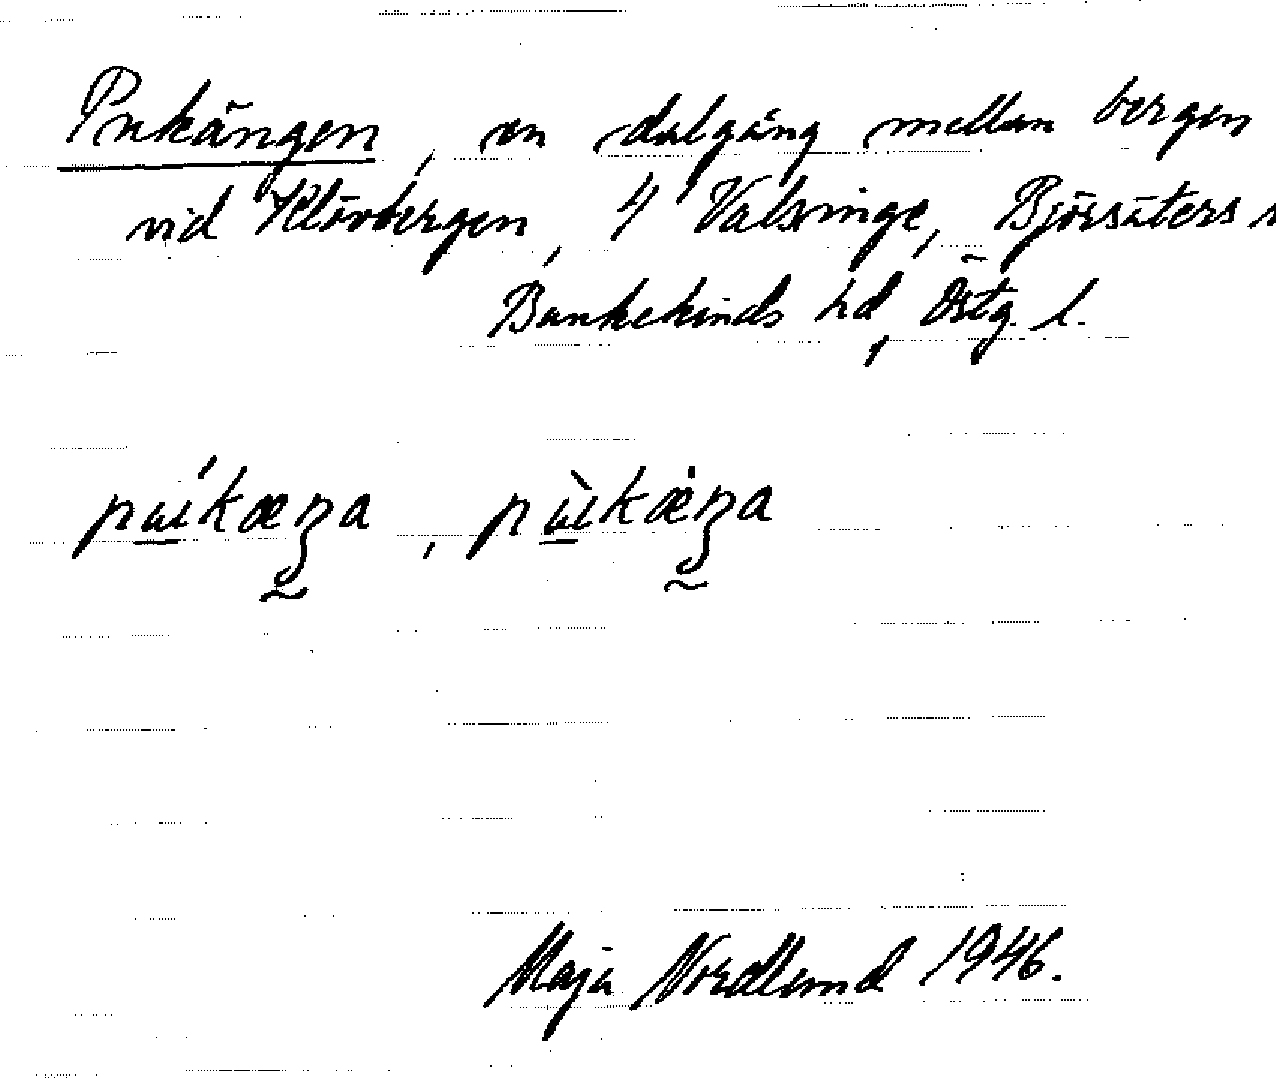 Pukängen, en dalgång mellan bergen
vid Klövbergen, 4 Valsinge, Björsäters s
Bankekinds hd, Östg. l.
Maja Nordlund 1946.